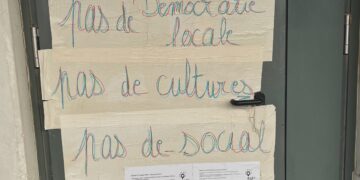 pas de Démocratie
locale
pas de cultures
pas de social